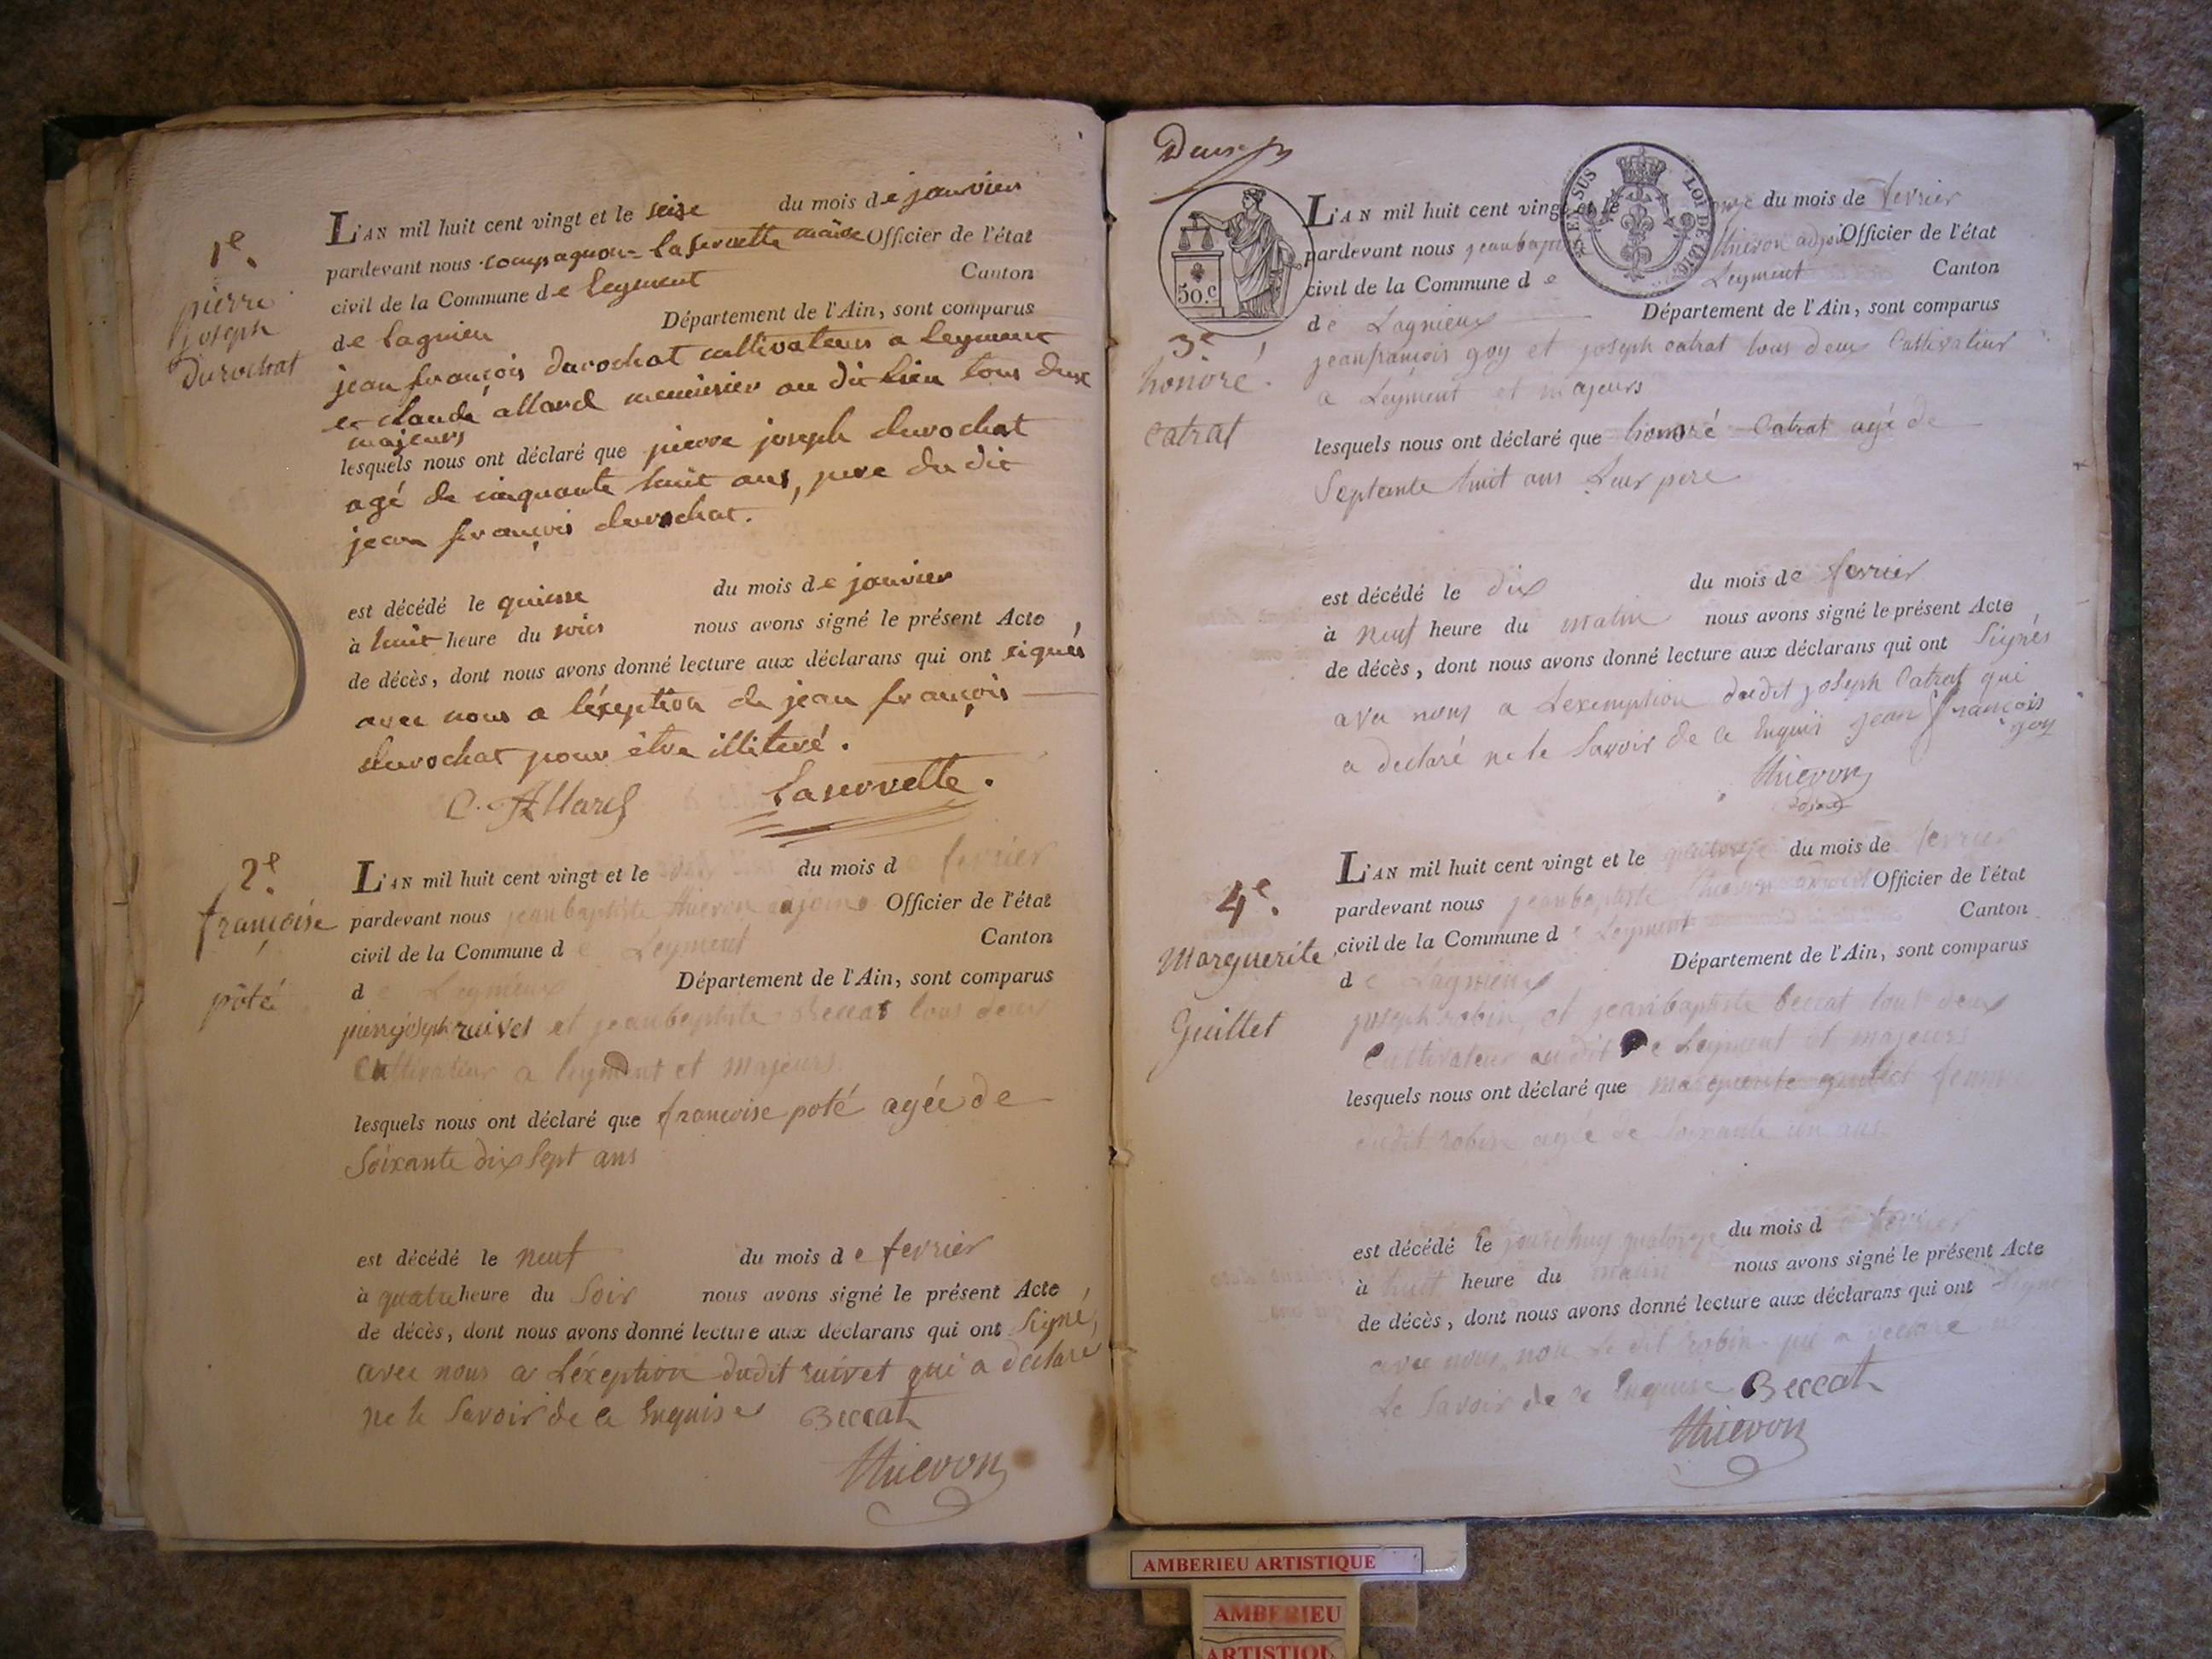 1e.
pierre
joseph
Durochat
L'AN mil huit cent vingt et le seize du mois de janvier
pardevant nous compagnon-laservette maire Officier de l'état
civil de la Commune de leyment Canton
de lagnieu Département de l'Ain, sont comparus
jean françois durochat cultivateur a leyment
et claude allard menuisier au dit lieu tous deux
majeurs
lesquels nous ont déclaré que pierre joseph durochat
agé de cinquante huit ans, pere du dit
jean françois durochat.
est décédé le quinse du mois de janvier
à huit heure du soir nous avons signé le présent Acte
de décès, dont nous avons donné lecture aux déclarans qui ont signés
avec nous a léxeption de jean françois
durochat pour être illiteré.
C. Allard Laservette.
2e.
françoise
poté
L'AN mil huit cent vingt et le du mois de fevrier
pardevant nous jeanbaptiste thievon adjoint Officier de l'état
civil de la Commune de Leyment Canton
de Lagnieux Département de l'Ain, sont comparus
pierrejoseph ruivet et jeanbaptiste Beccat tous deux
Cultivateur a leyment et majeurs
lesquels nous ont déclaré que francoise poté agée de
Soixante dix Sept ans
est décédé le neuf du mois de fevrier
à quatre heure du Soir nous avons signé le présent Acte
de décès, dont nous avons donné lecture aux déclarans qui ont Signé,
avec nous a Léxeption dudit ruivet qui a déclaré
ne le Savoir de ce Enquise Beccat
thievon
50.c
LOI DE
3e
honoré.
Catrat
L'AN mil huit cent vingt et le onze du mois de fevrier
pardevant nous jeanbaptiste thievon adjoint Officier de l'état
civil de la Commune de Leyment Canton
de Lagnieux Département de l'Ain, sont comparus
jeanfrançois goy et joseph catrat tous deux Cultivateur
a Leyment et majeurs
lesquels nous ont déclaré que honoré Catrat agé de
Septante huit ans Leur pere
est décédé le dix du mois de fevrier
à neuf heure du matin nous avons signé le présent Acte
de décès, dont nous avons donné lecture aux déclarans qui ont Signés
avec nous a Lexemption dudit joseph Catrat qui
a declaré ne le Savoir de ce Enquis jean françois
goy
thievon
4e.
Marguerite
Guillet
L'AN mil huit cent vingt et le quatorze du mois de fevrier
pardevant nous jeanbaptiste thievon adjoint Officier de l'état
civil de la Commune de Leyment Canton
de Lagnieux Département de l'Ain, sont comparus
joseph robin, et jeanbaptiste beccat tout deux
Cultivateur audit Leyment et majeurs
lesquels nous ont déclaré que marguerite guillet femme
dudit robin agée de Soixante un ans
est décédé le jourdhuy quatorze du mois de fevrier
à huit heure du matin nous avons signé le présent Acte
de décès, dont nous avons donné lecture aux déclarans qui ont Signé
avec nous non Le dit robin qui a declaré ne
Le Savoir de ce Enquise Beccat
thievon
AMBERIEU ARTISTIQUE
AMBERIEU
ARTISTIQU